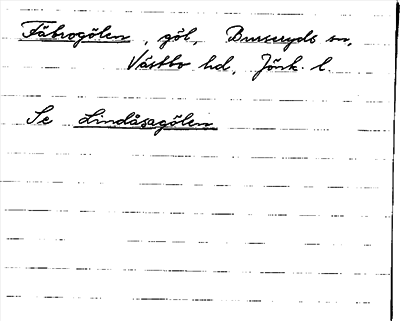 Fäbrogölen, göl, Burseryds sn,
Västbo hd, Jönk. l.
Se Lindåsagölen